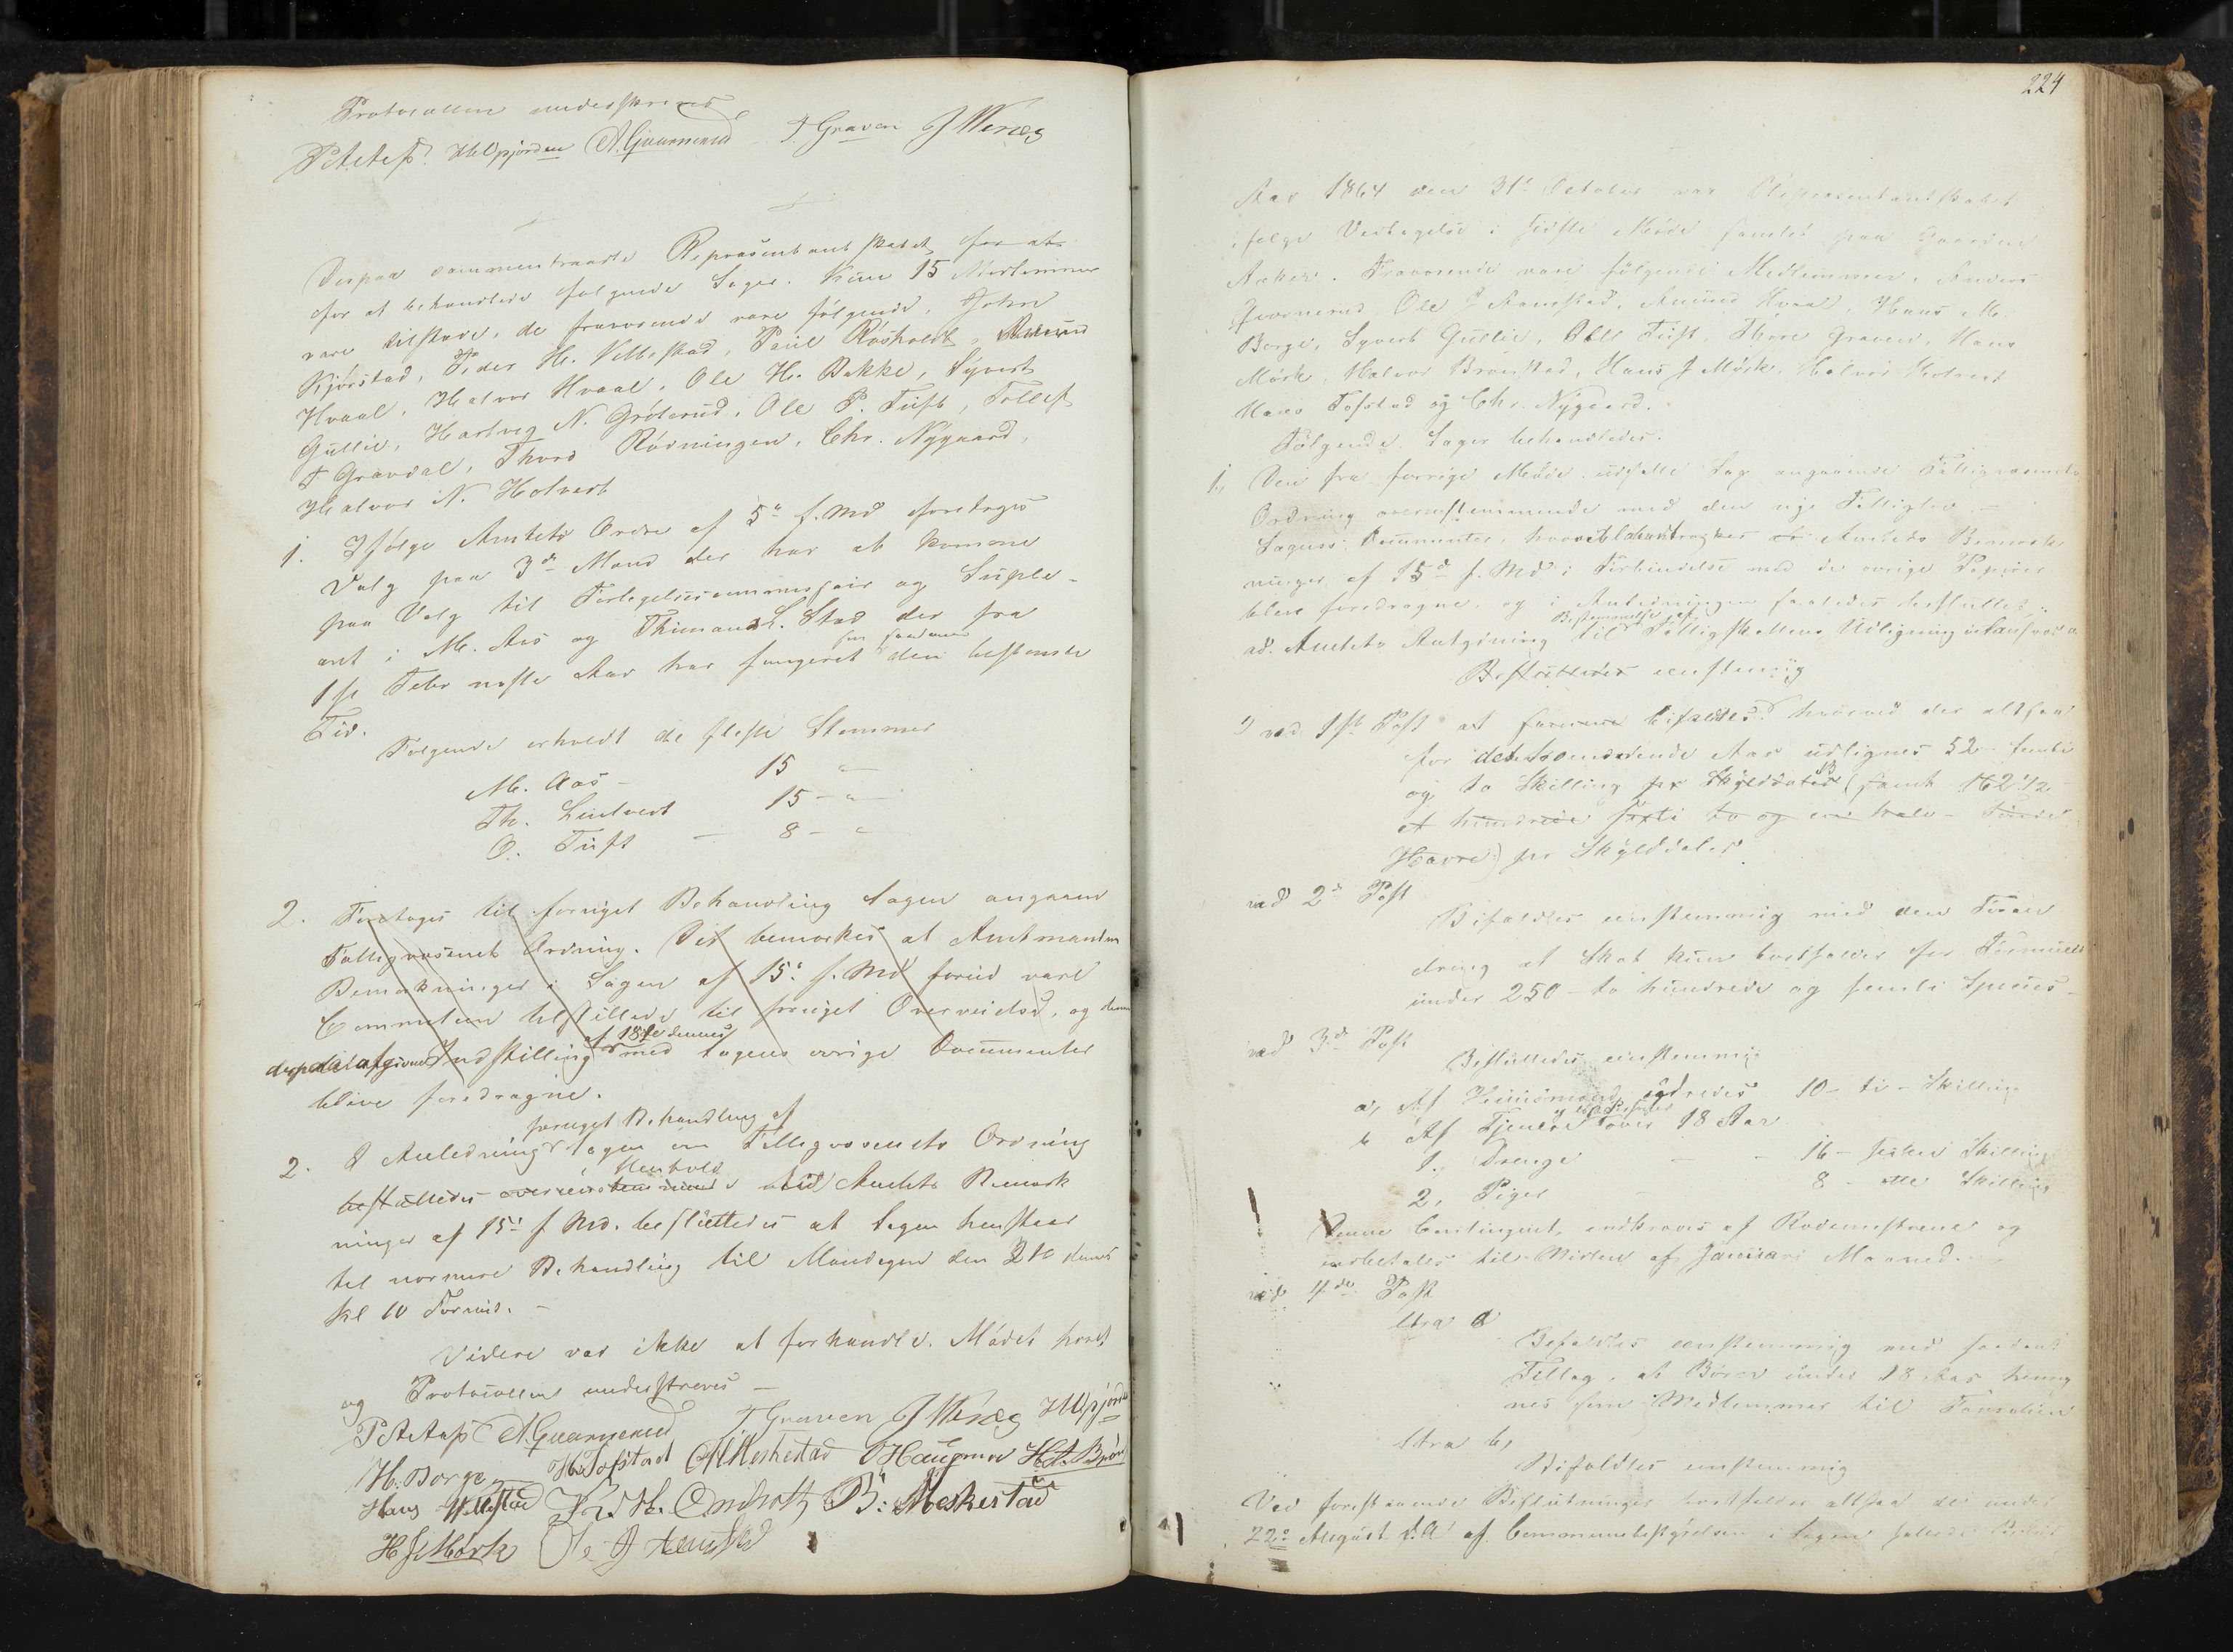 Protocollen underskreves
P Aetaß. HUlpjorden A. Gunnerud T Graven J Wenæs
Derpaa sammentraadte Repræsentantskabet for at
for at behandlede følgende Sager. Kun 15 Medlemmer
vare tilstæde, de fraværende vare følgende, John
Kjørstad, Peder H. Vibbestad, Paul Røsholdt, Amund
Hvaal, Halvor Hvaal, Ole H. Bakke, Syvert
Gullie, Hartvig N. Grøterud, Ole P. Tuft, Tollef
T Gravdal, Thord Rødningen, Chr. Nygaard,
Halvor N. Holtvert
1. Ifølge Amtets Ordre af 5te f. Md foretoges
Valg paa 3de Mand der har at komme
paa Valg til Forligelsescommissair og Suple-
ant i M. Aas og Thimand L. Stad der fra
1ste Febr næste Aar har fungeret som saadanne den bestemte
Tid.
Følgende erholdt de fleste Stemmer
M. Aas - 15 "
Th. Lindtvert 15 - "
O. Tuft - 8 - "
2. Foretoges til forniget Behandling Sagen angaaende
Fattigvæsenets Ordning. Det bemærkes at Amtmandens
Bemærkninger i Sagen af 15de f. Md forud vare
Commissionen tilstillede til forniget Overveielse, og dennes
derpaa afgivne Indstilling af 18de dennes med Sagens øvrige Documenter
bleve foredragne.
forniget Behandling af
2. I Anledning Sagen om Fattigvæsenets Ordning
besluttedes overeensstemmende Henhold til Amtets Bemærk
ninger af 15de f Md. besluttedes at Sagen henstaar
til nærmere Behandling til Mandagen den 31te dennes
Kl 10 Formid. -
Videre var ikke at forhandle. Mødet hævet
og Protocollen underskreves -
P Aetaß A. Gunnerud T. Graven J Wenæs HUlpjorden
H. Borge H. Tofstad Meshestad O Haugerud H.A. Brøn
Hans Vibbestad B: Meskestad
H J Mørk Ole J Aamstad
224
Aar 1864 den 31te October var Repræsentantskabet
ifølge Vedtagelse i sidste Møde samlet paa Gaarden
Aaker. Fraværende vare følgende Medlemmer, Anders
Gunnerud, Ole J Aamstad, Amund Hvaal, Hans M.
Borge, Syvert Gullie, Ole Tuft, Thore Graven, Hans
Mørk, Halvor Brønstad, Hans J Mørk, Halvor Holtvert
Hans Tofstad og Chr. Nygaard.
Følgende Sager behandledes:
1, Den fra forrige Møde udsatte Sag angaaende Fattigvæsenets
Ordning overensstemmende med den nye Fattiglov -
Sagens Documenter, hvoriblandt Amtets Bemærk
ninger af 15de f. Md i Forbindelse med de øvrige Papirer
bleve foredragne, og i Anledningen saaledes besluttet:
ad. Amtets Antydning til Bestemmelse af Fattigskattens Udligning
Besluttedes eenstemmig
1) ved 1ste Post at bifaldes hvorved der altsaa
for det kommende Aar udlignes 52 - femti
og to Skilling pr Skylddaler (samt 162 1/2
et hundrede sexti to og en halv - Tønder
Havre) pr Skylddaler.
ved 2de Post
Bifaldtes eenstemmig med den Foran
dring at Skat kun bortfalder for Formuer
under 250 - to hundrede og femti Species
ved 3de Post
Besluttedes eenstemmig
a, Af Huusmænd udredes 10 - ti - Skilling
b Af Tjenere over 18 Aar
1, Drenge - - 16 - sexten Skilling
2, Piger - 8 - otte Skilling
Denne Contingent, indkræves af Rodemestrene og
indbetales til Midten af Januari Maaned.
ved 4de Post
Litra a
Bifaldtes eenstemmig med saadant
Tillæg, at Børn under 18 Aar henreg
nes som Medlemmer til Familien
Litra b,
Bifaldtes eenstemmig
Ved forestaaende Beslutninger bortfalder altsaa de under
22de August d. A. af Communebestyrelsen i Sagen fattede